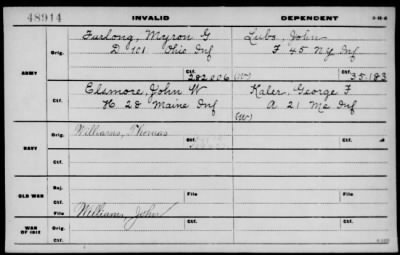 48914 INVALID DEPENDENT
Furlong, Myron G Lubs, John
Orig. D 101 Ohio Inf F 45 N.Y. Inf
Ctf. Ctf.
ARMY 282006 (W) 35.183
Elsmore, John W Kaler, George F
Orig. H 28 Maine Inf A 21 Me Inf
Ctf. (W)
Williams, Thomas
Orig.
NAVY
Ctf. Ctf.
Suj.
OLD WAR File File
Ctf. Ctf.
Williams, John
WAR OF 1812 Orig.
Ctf. Ctf.